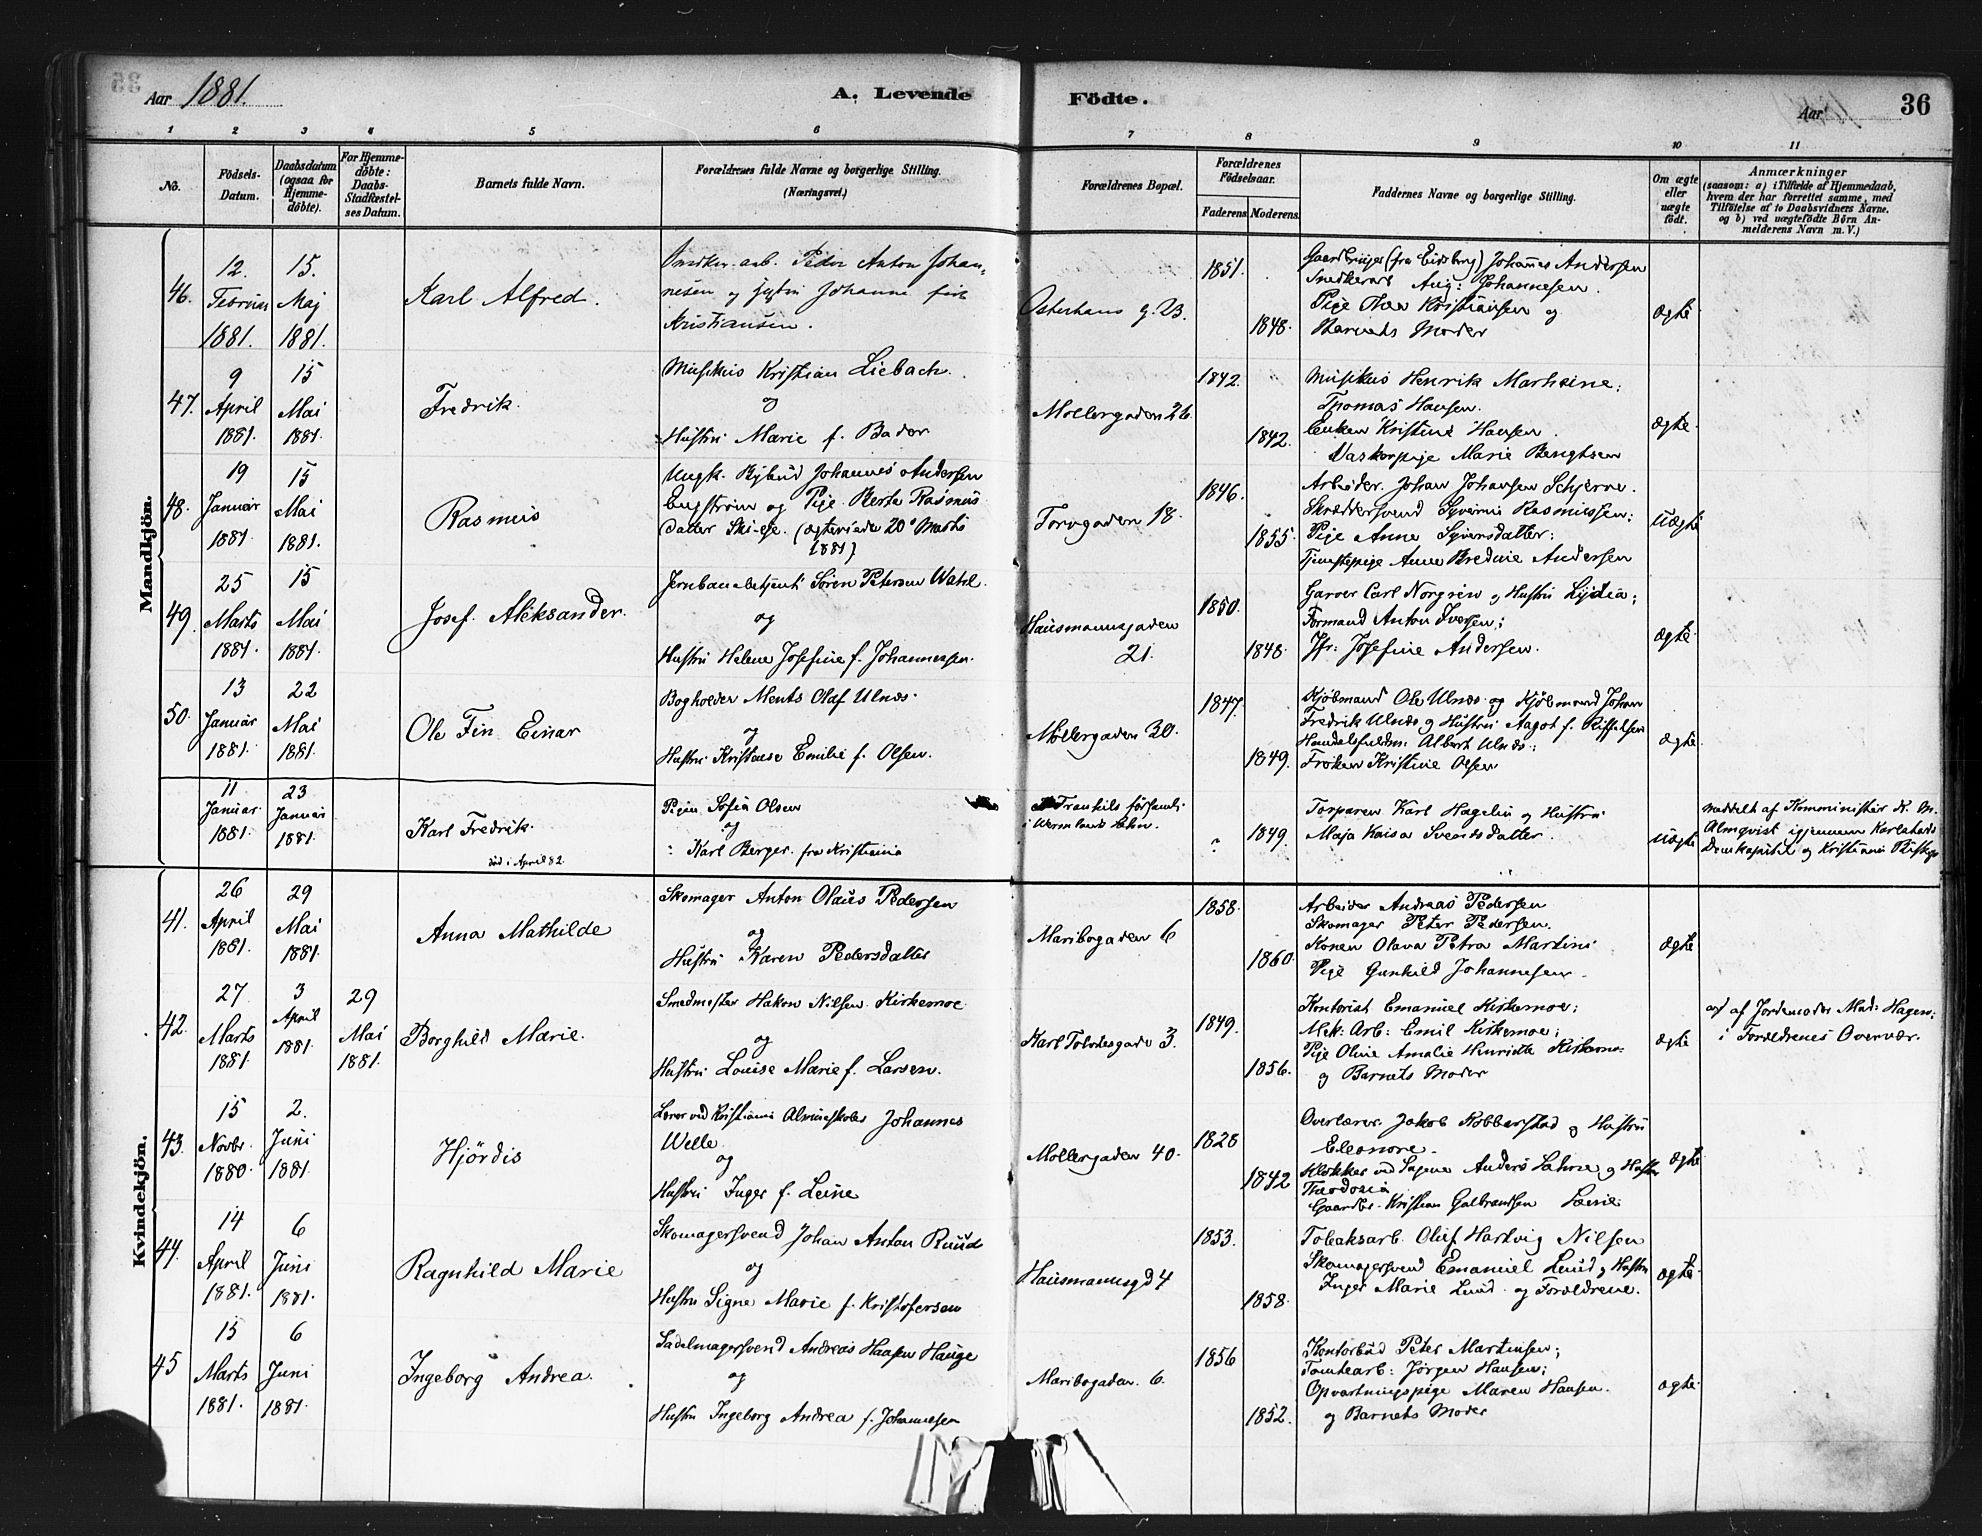 Aar 1881.
A. Levende
Födte.
Aar
36
1 2 3 4 5 6 7 8 9 10 11
No.
Födsels-Datum.
Daabsdatum (ogsaa for Hjemme-döbte).
For Hjemme-döbte: Daabs-Stadfæstel-ses Datum.
Barnets fulde Navn.
Forældrenes fulde Navne og borgerlige Stilling.
(Næringsvei.)
Forældrenes Bopæl.
Forældrenes Födselsaar.
Faderens. Moderens.
Faddernes Navne og borgerlige Stilling.
Om ægte eller uægte födt.
Anmærkninger
(saasom: a) i Tilfælde af Hjemmedaab,
hvem der har forrettet samme, med
Tilföielse af to Daabsvidners Navne.
og b) ved uægtefödte Børn An-
melderens Navn m. V.)
Mandkjön.
46.
12.
Februar
1881.
15.
Maj
1881.
Karl Alfred.
Snedker arb. Peder Anton Johan-
nesen og Johanne født
Kristiansen.
Osterhaus g. 23.
1851.
1848.
(fra Eidsberg) Johannes Andersen
Snedkerarb Aug: Johannesen.
Pige Thea Kristiansen og
Barnets Moder
ægte
47.
9
April
1881.
15
Mai
1881.
Fredrik.
Musikus Kristian Liebach.
og
Hustru Marie f. Bader
Møllergaden 26
1842.
1842.
Musikus Henrik
Thomas Hansen.
Enken Kristine Hansen.
Vaskerpige Marie Bengtsen
ægte
48.
19
Januar
1881.
15
Mai
1881.
Rasmus
Ungk. Bybud Johannes Andersen
Engstrøm og Pige Berte Rasmus
datter (ægteviede 20 Marts
1881)
Torvgaden 18.
1846.
1855.
Arbeider Johan Johansen Schjerve.
Skræddersvend Syvernis Rasmussen;
Pige Anne Syversdatter:
Tjenestepige Anne Andersen
Uægte
49.
25
Marts
1881.
15
Mai
1881.
Josef Aleksander.
Jernbanebetjent Søren Petersen Wahl.
og
Hustru Helene Josefine f. Johannessen.
Hausmannsgaden
21.
1850.
1848.
Garver Carl Norgren og Hustru Lydia;
Formand Anton Iversen;
Jfr: Josefine Andersen.
ægte
50.
13
Januar
1881.
22
Mai
1881.
Ole Fin Einar
Bogholder Ments Olaf Ulnæs.
og
Hustru Emilie f. Olsen.
Møllergaden 30.
1847.
1849.
Kjøbmand Ole Ulnæs og Kjøbmand Johan
Fredrik Ulnæs og Hustru Aagot f.
Albert Ulnæs;
Frøken Kristine Olsen
ægte
11
Januar
1881.
23
Januar
1881.
Karl Fredrik.
død i April 82.
Pigen Sofia Olsen
og
Karl Berger fra Kristiania
i Wermland
?
1849.
Torparen Karl Hagelin og Hustru
Maja Kaisa Svendsdatter.
Uægte
Meddelt af Komminister K. M.
Almqvist igjennem Karlstads
Domkapitel og Kristiania
Kvindekjön.
41.
26
April
1881.
29
Mai
1881.
Anna Mathilde
Skomager Anton Olaus Pedersen
og
Hustru Karen Pedersdatter
Maribogaden 6
1858.
1860.
Arbeider Andreas Pedersen
Skomager Peter Pedersen.
Konen Olava Petra Martins
Pige Gunhild Johannesen.
ægte
42.
27
Marts
1881.
3
April
1881.
29
Mai
1881.
Borghild Marie.
Smedmester Hakon Nilsen Kirkemoe
og
Hustru Louise Marie f. Larsen.
Karl Johansgade 3.
1849.
1856.
Kontorist Emanuel Kirkemoe;
Mek: Arb: Emil Kirkemoe;
Pige Oline Amalie Henriette Kirkemo
og Barnets Moder
ægte
af Jordemoder Mad: Hagen;
i Forældrenes Overvær.
43.
15
Novbr.
1880.
2.
Juni
1881.
Hjördis
Lærer ved Kristiania Almueskoler Johannes
Welle.
og
Hustru Inger f. Leine
Møllergaden 40.
1828
1842
Overlærer Jakob Robberstad og Hustru
Eleonore.
Klokker ved Anders og Hustru
Theodosia
Gaardbr. Kristian Gulbrandsen
ægte
44.
14
April
1881.
6
Juni
1881.
Ragnhild Marie
Skomagersvend Johan Anton Ruud
og
Hustru Signe Marie f. Kristofersen
Hausmannsgd 4
1853.
1858.
Tobaksarb. Oluf Hartvig Nilsen
Skomagersvend Emanuel Lund og Hustru
Inger Marie Lund og Forældrene.
ægte
45
15
Marts
1881.
6
Juni
1881.
Ingeborg Andrea.
Sadelmagersvend Andreas Haagen Hauge
og
Hustru Ingeborg Andrea f. Johannesen
Maribogaden 6.
1856
1852.
Kontorbud Peter Martinsen;
Tomtearb: Jørgen Hansen;
Opvartningspige Maren Hansen.
og Barnets Moder
ægte